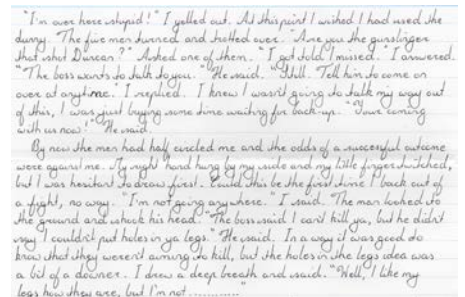 "I'm over here stupid!" I yelled out. At this point I wished I had used the
dunny. The five men turned and trotted over. "Are you the gunslinger
that shot Duncan?" Asked one of them. "I got told I missed." I answered.
"The boss wants to talk to you." He said. "Well. Tell him to come on
over at anytime." I replied. I knew I wasn't going to talk my way out
of this, I was just buying some time waiting for back-up. "Your coming
with us now!" He said.
By now the men had half circled me and the odds of a successful outcome
were against me. My right hand hung by my side and my little finger twitched,
but I was hesitant to draw first. Could this be the first time I back out of
a fight, no way. "I'm not going anywhere." I said. The man looked to
the ground and shook his head. "The boss said I can't kill ya, but he didn't
say I couldn't put holes in ya legs." He said. In a way it was good to
know that they weren't aiming to kill, but the holes in the legs idea was
a bit of a downer. I drew a deep breath and said. "Well, I like my
legs how they are, but I'm not ............"